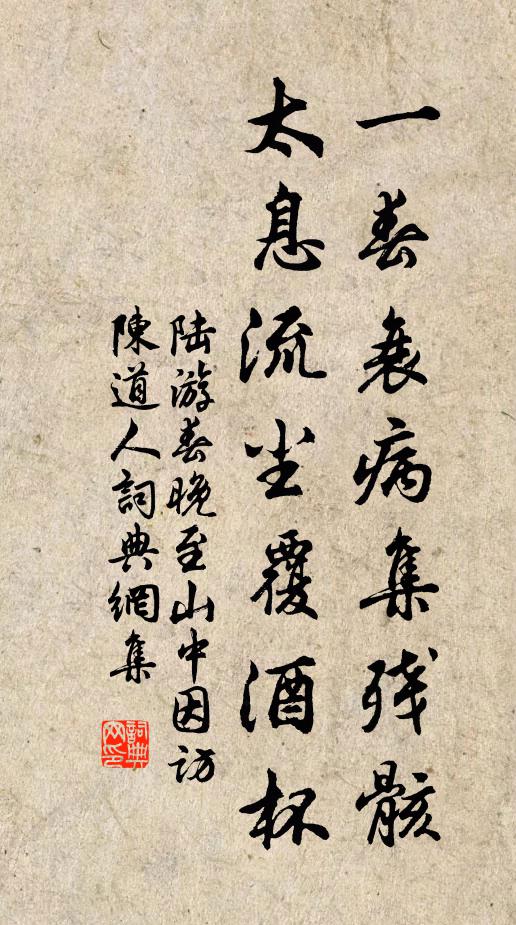 一春衰病集残骸
太息流尘覆酒杯
陆游春晚至山中因访
陳道人詞典網集
詞典
网印